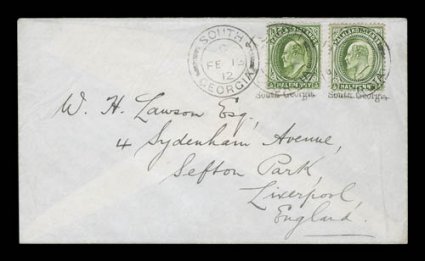 SOUTH
FE 1
12
GEORGIA
FALKLAND ISLANDS
FALKLAND ISLANDS
HALFPENNY
HALFPENNY
South Georgia.
South Georgia.
W. H. Lawson Esq.,
4 Sydenham Avenue,
Sefton Park,
Liverpool,
England.